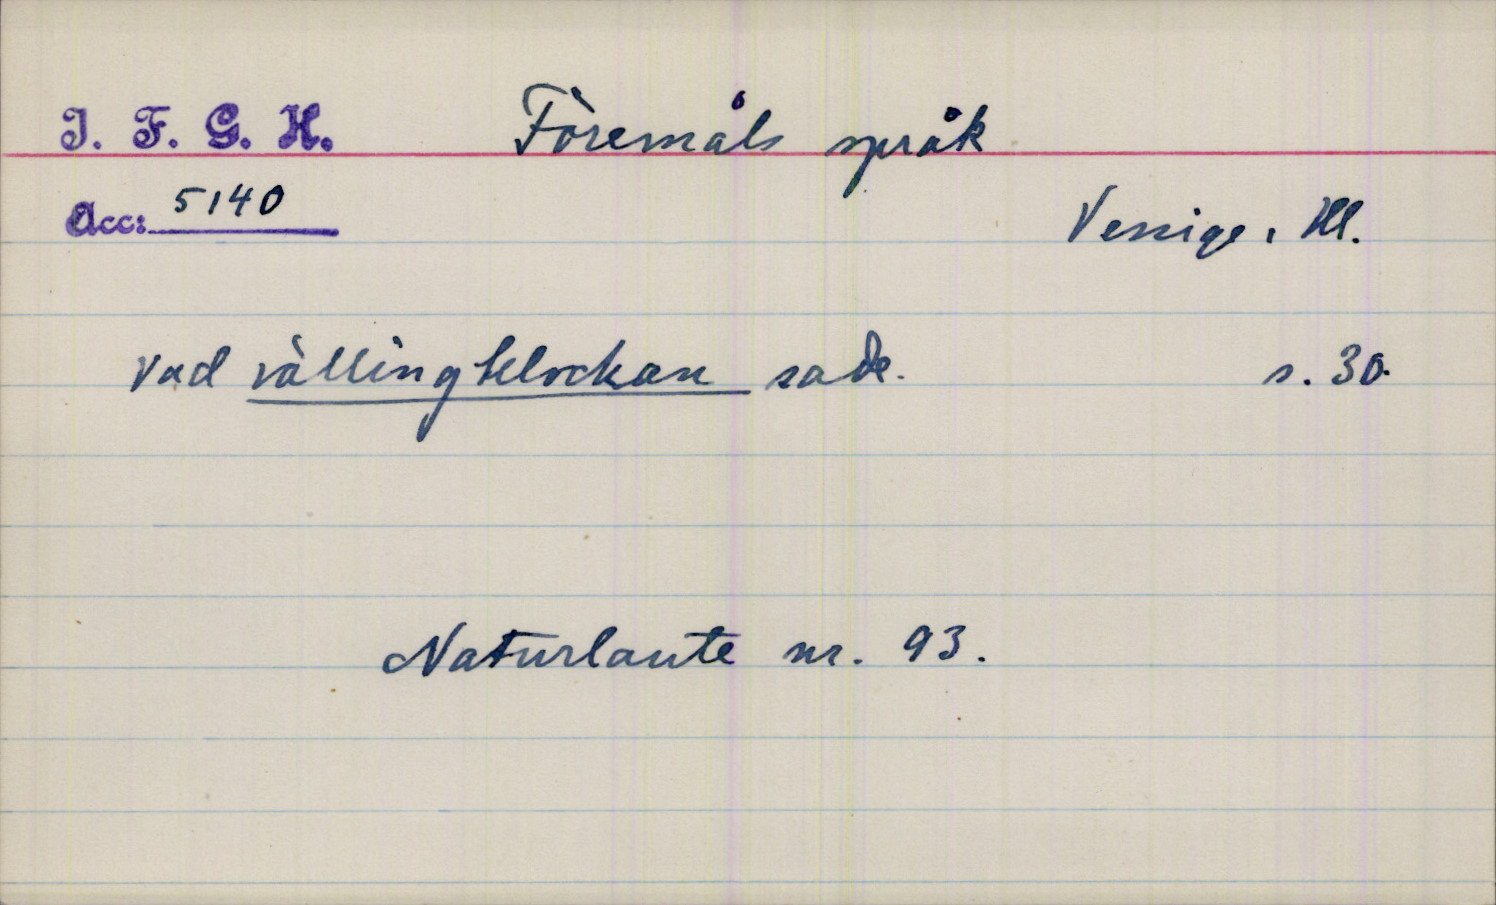 I. F. G. H. Föremåls språk
Acc: 5140
Vessige, Hl.
Vad vällingklockan sade. s. 30.
Naturlaute nr. 93.